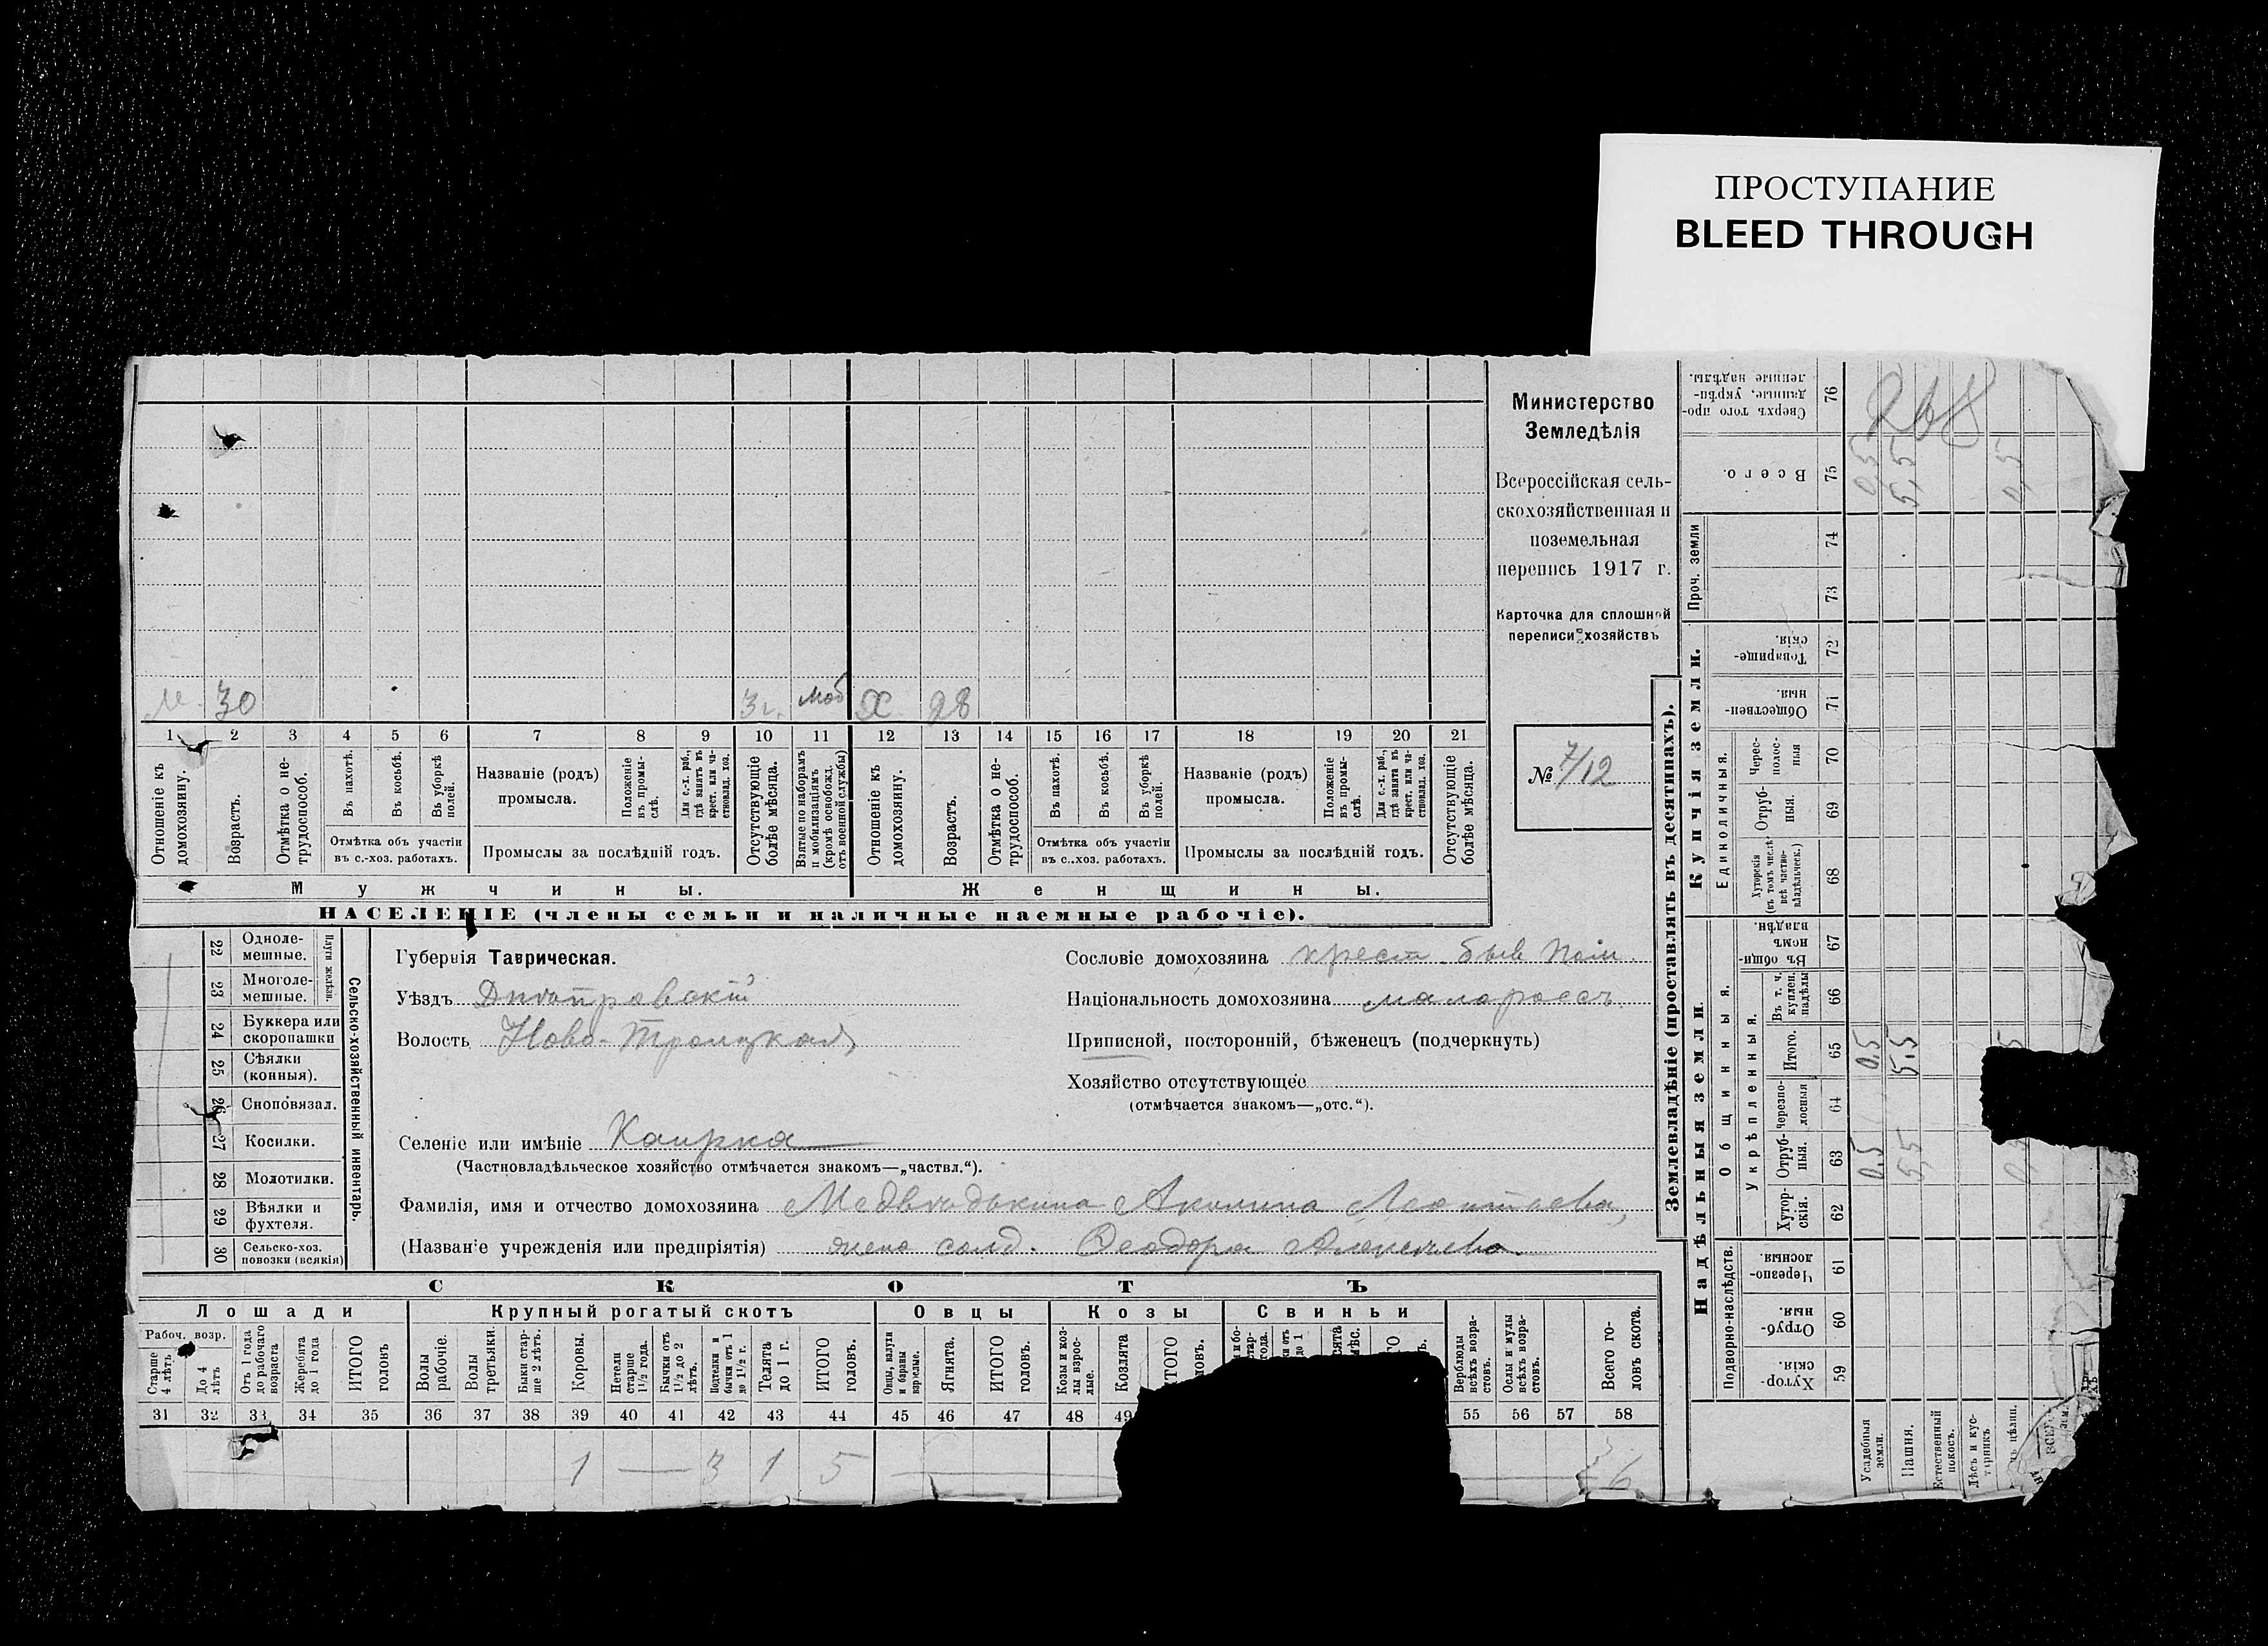 ПРОСТУПАНИЕ
BLEED THROUGH
Министерство
Земледѣлія
Всероссійская сель-
скохозяйственная и
поземельная
перепись 1917 г.
Карточка для сплошной
переписи хозяйствъ
№ 7/12
м. 30 3 г. моб х. 28
1 2 3 4 5 6 7 8 9 10 11 12 13 14 15 16 17 18 19 20 21
Отношеніе къ домохозяину.
Возрастъ.
Отмѣтка о не-трудоспособ.
Въ пахотѣ.
Въ косьбѣ.
Въ уборкѣ полей.
Отмѣтка объ участіи
въ с.-хоз. работахъ.
Названіе (родъ)
промысла.
Положеніе въ промы-слѣ.
Для с.-х. раб., гдѣ занятъ въ крест. или ча-стновлад. хоз.
Промыслы за послѣдній годъ.
Отсутствующіе болѣе мѣсяца.
Взятые по наборамъ и мобилизаціямъ (кромѣ освобожд. отъ военной службы)
Отношеніе къ домохозяину.
Возрастъ.
Отмѣтка о не-трудоспособ.
Въ пахотѣ.
Въ косьбѣ.
Въ уборкѣ полей.
Отмѣтка объ участіи
въ с..хоз. работахъ.
Названіе (родъ)
промысла.
Положеніе въ промы-слѣ.
Для с.-х. раб., гдѣ занята въ крест. или ча-стновлад. хоз.
Промыслы за послѣдній годъ.
Отсутствующіе болѣе мѣсяца.
Мужчины.
Женщины.
НАСЕЛЕНІЕ (члены семьи и наличные наемные рабочіе).
22 Одноле-мешные.
23 Многоле-мешные.
Плуги желѣзн.
24 Буккера или скоропашки
25 Сѣялки (конныя).
26 Сноповязал.
27 Косилки.
28 Молотилки.
29 Вѣялки и фухтеля.
30 Сельско-хоз. повозки (всякія)
Сельско-хозяйственный инвентарь.
Губернія Таврическая.
Уѣздъ Днѣпровскій
Волость Ново-Троицкая
Селеніе или имѣніе Каирка
(Частновладѣльческое хозяйство отмѣчается знакомъ—„частвл.“).
Фамилія, имя и отчество домохозяина Медвѣдькина Акилина Леонтіева,
(Названіе учрежденія или предпріятія) жена солд. Ѳеодора Алексѣева.
Сословіе домохозяина крест. быв
Національность домохозяина малороссъ
Приписной, посторонній, бѣженецъ (подчеркнуть)
Хозяйство отсутствующее
(отмѣчается знакомъ—„отс.“).
СКОТЪ
Лошади
Крупный рогатый скотъ
Овцы
Козы
Свиньи
Рабоч. возр.
Старше 4 лѣтъ
До 4 лѣтъ
Отъ 1 года до рабочаго возраста
Жеребята до 1 года
ИТОГО головъ
Волы рабочіе.
Волы третьяки.
Быки стар-ше 2 лѣтъ.
Коровы.
Нетели старше 1 1/2 года.
Бычки отъ 1 1/2 до 2 лѣтъ.
Подтелки и бычки отъ 1 до 1 1/2 г.
Телята до 1 г.
ИТОГО головъ.
Овцы, валухи и бараны взрослые.
Ягнята.
ИТОГО головъ.
Козы и коз-лы взрос-лые.
Козлята
Верблюды всѣхъ возра-стовъ.
Ослы и мулы всѣхъ возра-стовъ.
Всего го-ловъ скота.
31 32 33 34 35 36 37 38 39 40 41 42 43 44 45 46 47 48 49 55 56 57 58
1 — 3 1 5 — 6
Землевладѣніе (проставлять въ десятинахъ).
Купчія земли.
Надѣльныя земли.
Проч. земли
Сверхъ того про-данные, укрѣп-ленные надѣлы. 76
Всего. 75
74
73
Товарище-скія. 72
Обществен-ныя 71
Единоличныя.
Черес-полос-ныя 70
Отруб-ныя. 69
Хуторскія (въ томъ числѣ всѣ частно-владѣльческ.) 68
Общинныя.
Въ общин-номъ владѣн. 67
Укрѣпленныя.
Въ т. ч. куплен. надѣлы 66
Итого. 65
черезпо-лосныя 64
Отруб-ныя. 63
Хутор-скія. 62
Подворно-наслѣдств.
Черезпо-лосныя 61
Отруб-ныя. 60
Хутор-скія. 59
Усадебныя земли.
Пашня.
Естественный покосъ.
Лѣсъ и кус-тарникъ
0,5 5,5
0,5 5,5
0,5 5,5